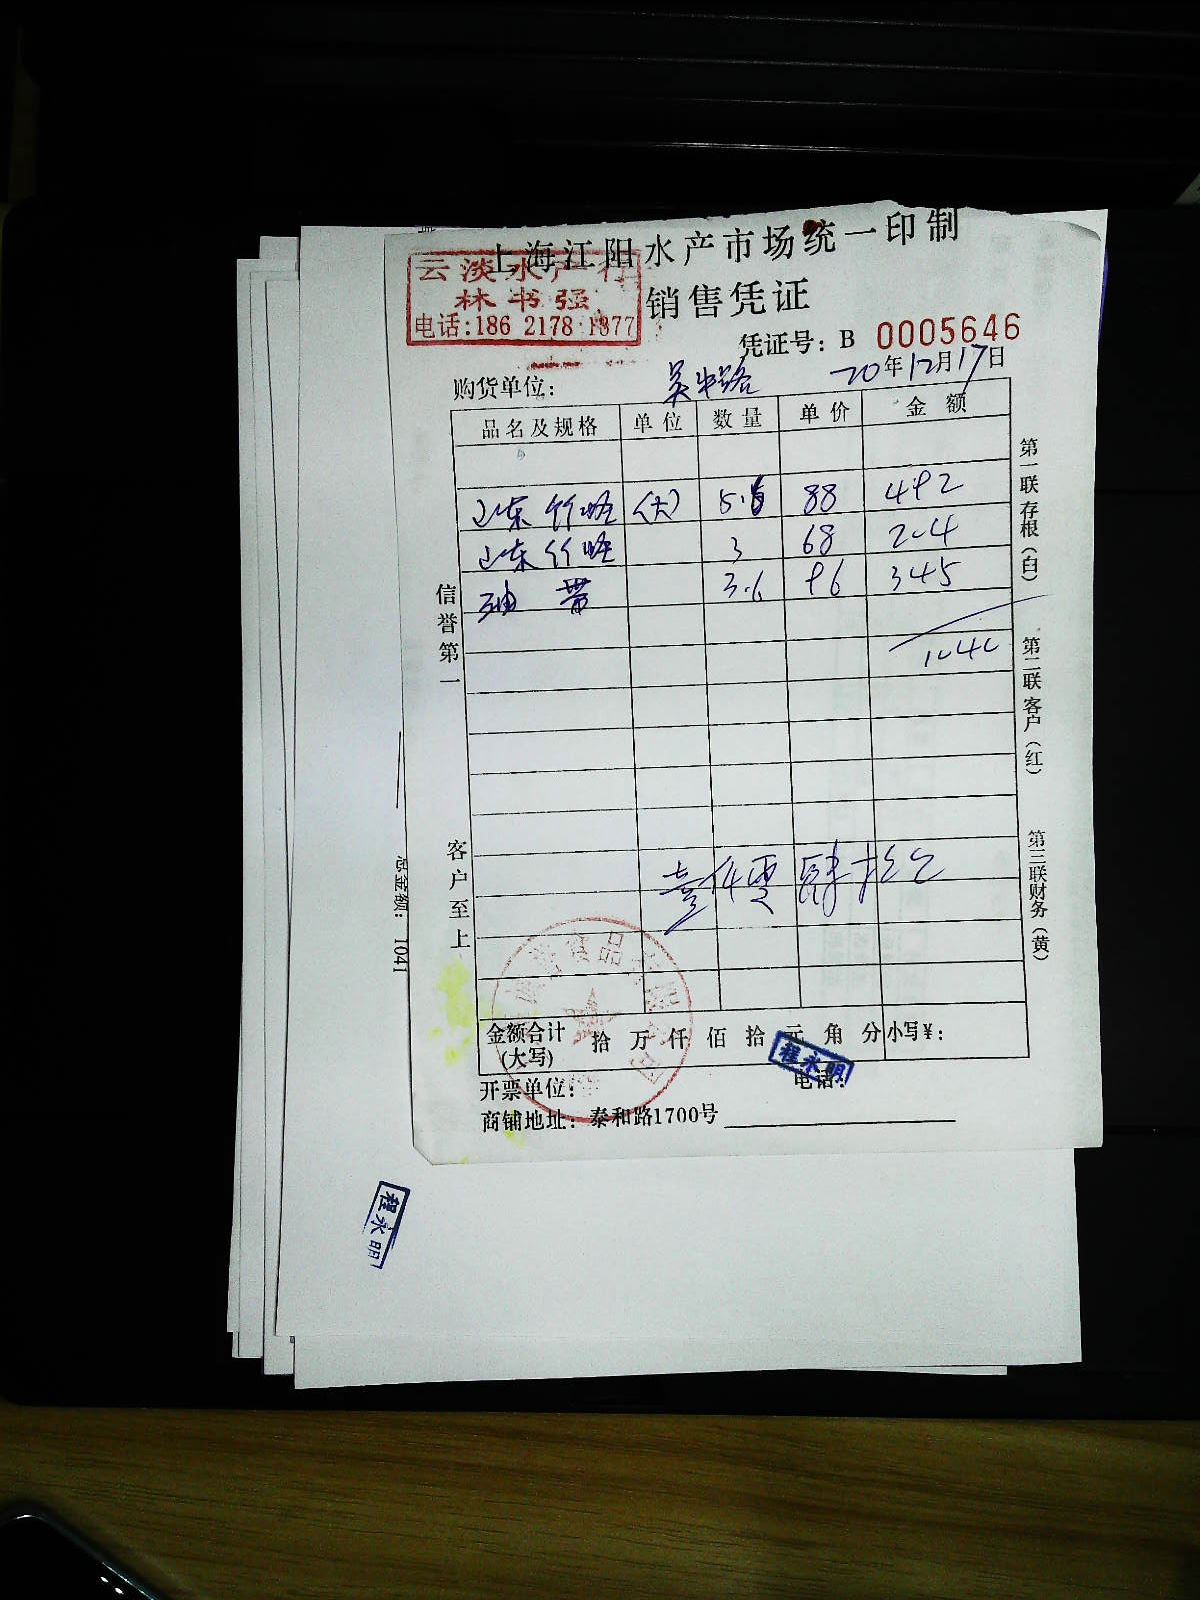 上海江阳水产市场统一印制
云淡水产行
林书强
电话:186 2178 1877
销售凭证
凭证号: B 0005646
购货单位: 吴中路 20年12月17日
品名及规格 单位 数量 单价 金额
山东竹蛏 (大) 5.6 88 492
山东竹蛏 3 68 204
油带 3.6 96 345
1040
信誉第一
客户至上
第一联存根(白)
第二联客户(红)
第三联财务(黄)
壹仟零肆拾
食品
金额合计(大写) 拾 万 仟 佰 拾 元 角 分 小写¥:
程永明
开票单位: 电话:
商铺地址: 泰和路1700号
总金额: 1041
程永明